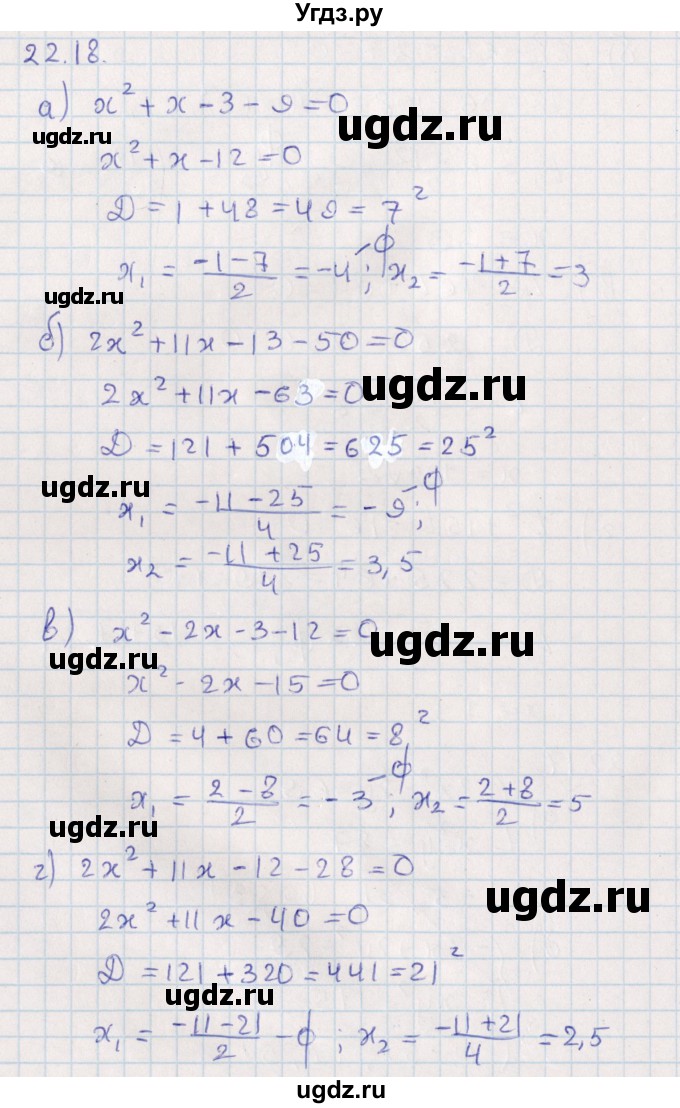 Угдз.ру
22.18.
а) x² + x - 3 - 9 = 0
ugdz.ru
ugdz.ru
x² + x - 12 = 0
Д = 1 + 48 = 49 = 7²
x₁ = (-1-7)/2 = -4 - ф; x₂ = (-1+7)/2 = 3
ugdz.ru
б) 2x² + 11x - 13 - 50 = 0
2x² + 11x - 63 = 0
ugdz.ru
Д = 121 + 504 = 625 = 25²
ugdz.ru
x₁ = (-11-25)/4 = -9 - ф;
x₂ = (-11+25)/4 = 3,5
в) x² - 2x - 3 - 12 = 0
ugdz.ru
ugdz.ru
x² - 2x - 15 = 0
Д = 4 + 60 = 64 = 8²
x₁ = (2-8)/2 = -3 - ф; x₂ = (2+8)/2 = 5
ugdz.ru
г) 2x² + 11x - 12 - 28 = 0
ugdz.ru
2x² + 11x - 40 = 0
Д = 121 + 320 = 441 = 21²
ugdz.ru
x₁ = (-11-21)/2 - ф; x₂ = (-11+21)/4 = 2,5
ugdz.ru